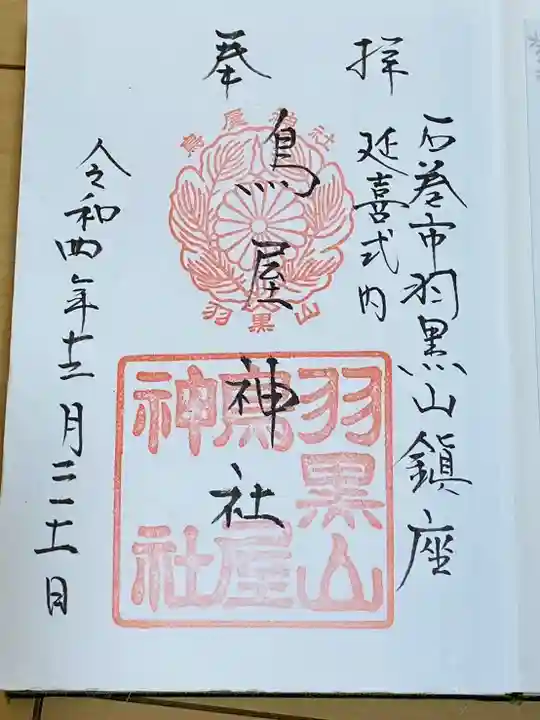 奉拝
石巻市羽黒山鎮座
延喜式内
鳥屋神社
令和四年十二月三十一日
鳥屋神社
羽黒山
羽黒山
鳥屋
神社